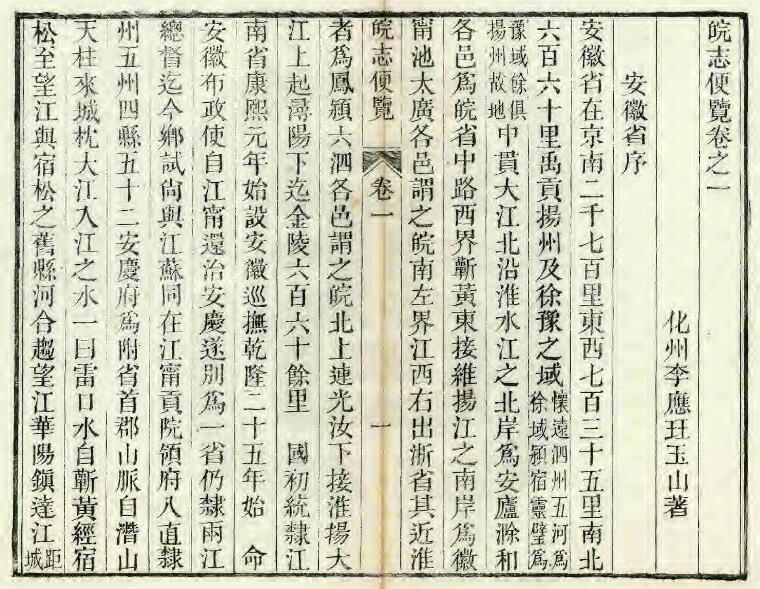 皖志便覽卷之一
化州李應珏玉山著
安徽省序
安徽省在京南二千七百里東西七百三十五里南北
六百六十里禹貢揚州及徐豫之域懷遠泗州五河爲徐域潁宿靈璧爲
豫域餘俱揚州故地中貫大江北沿淮水江之北岸爲安廬滁和
各邑爲皖省中路西界蘄黃東接維揚江之南岸爲徽
甯池太廣各邑謂之皖南左界江西右出浙省其近淮
皖志便覽 卷一 一
者爲鳳潁六泗各邑謂之皖北上連光汝下接淮揚大
江上起潯陽下迄金陵六百六十餘里 國初統隸江
南省康熙元年始設安徽巡撫乾隆二十五年始 命
安徽布政使自江甯還治安慶遂別爲一省仍隸兩江
總督迄今鄉試尙與江蘇同在江甯貢院領府八直隸
州五州四縣五十二安慶府爲附省首郡山脈自潛山
天柱來城枕大江入江之水一曰雷口水自蘄黃經宿
松至望江與宿松之舊縣河合趨望江華陽鎭達江距城